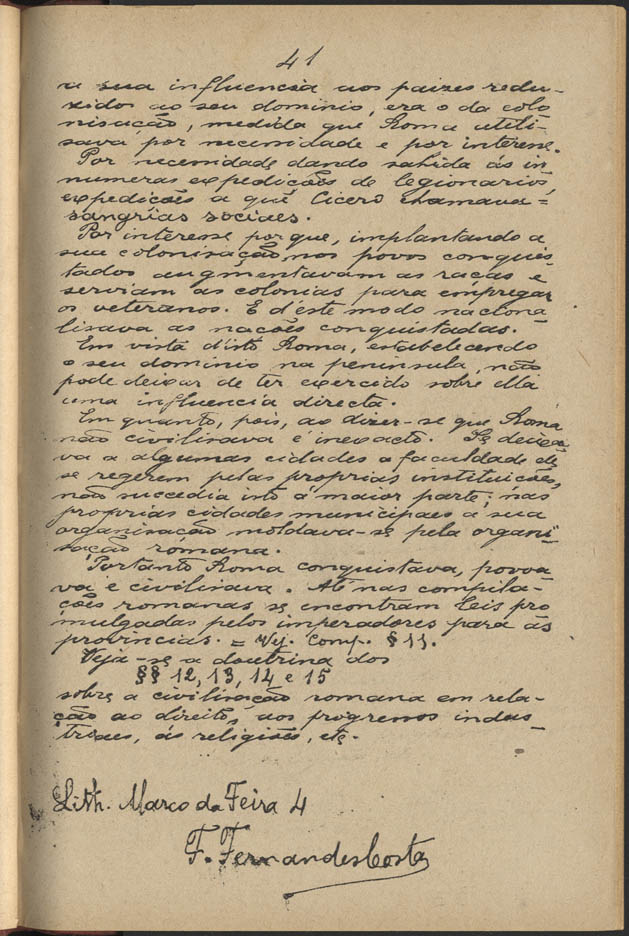 41
a sua influencia aos paizes redu-
zidos ao seu dominio, era o da colo
nisação, medida que Roma utili-
sava por necessidade e por interesse.
Por necessidade dando sahida ás in
numeras expedições de legionarios,
expedições a que Cicero chamava=
sangrias sociaes.
Por interesse porque, implantando a
sua colonisação nos povos conquis
tados augmentavam as raças e
serviam as colonias para empregar
os veteranos. E d'éste modo naciona
lisava as nações conquistadas.
Em vista d'isto Roma, estabelecendo
o seu dominio na peninsula, não
pode deixar de ter exercido sobre ella
uma influencia directa.
Em quanto, pois, ao dizer-se que Roma
não civilisava é inexacto. Se deixa-
va a algumas cidades a faculdade de
se regerem pelas proprias instituições,
não succedia isto á maior parte; nas
proprias cidades municipaes a sua
organisação moldava-se pela organi
sação romana.
Portanto Roma conquistava, povoa
va e civilisava. Até nas compila-
ções romanas se encontram leis pro
mulgadas pelos imperadores para as
provincias. = Vej. Comp. § 11.
Veja-se a doutrina dos
§§ 12, 13, 14 e 15
sobre a civilisação romana em rela-
ção ao direito, aos progressos indus_
triaes, ás religiões, etc.
Lith. Marco da Feira 4
F. Fernandes Costa